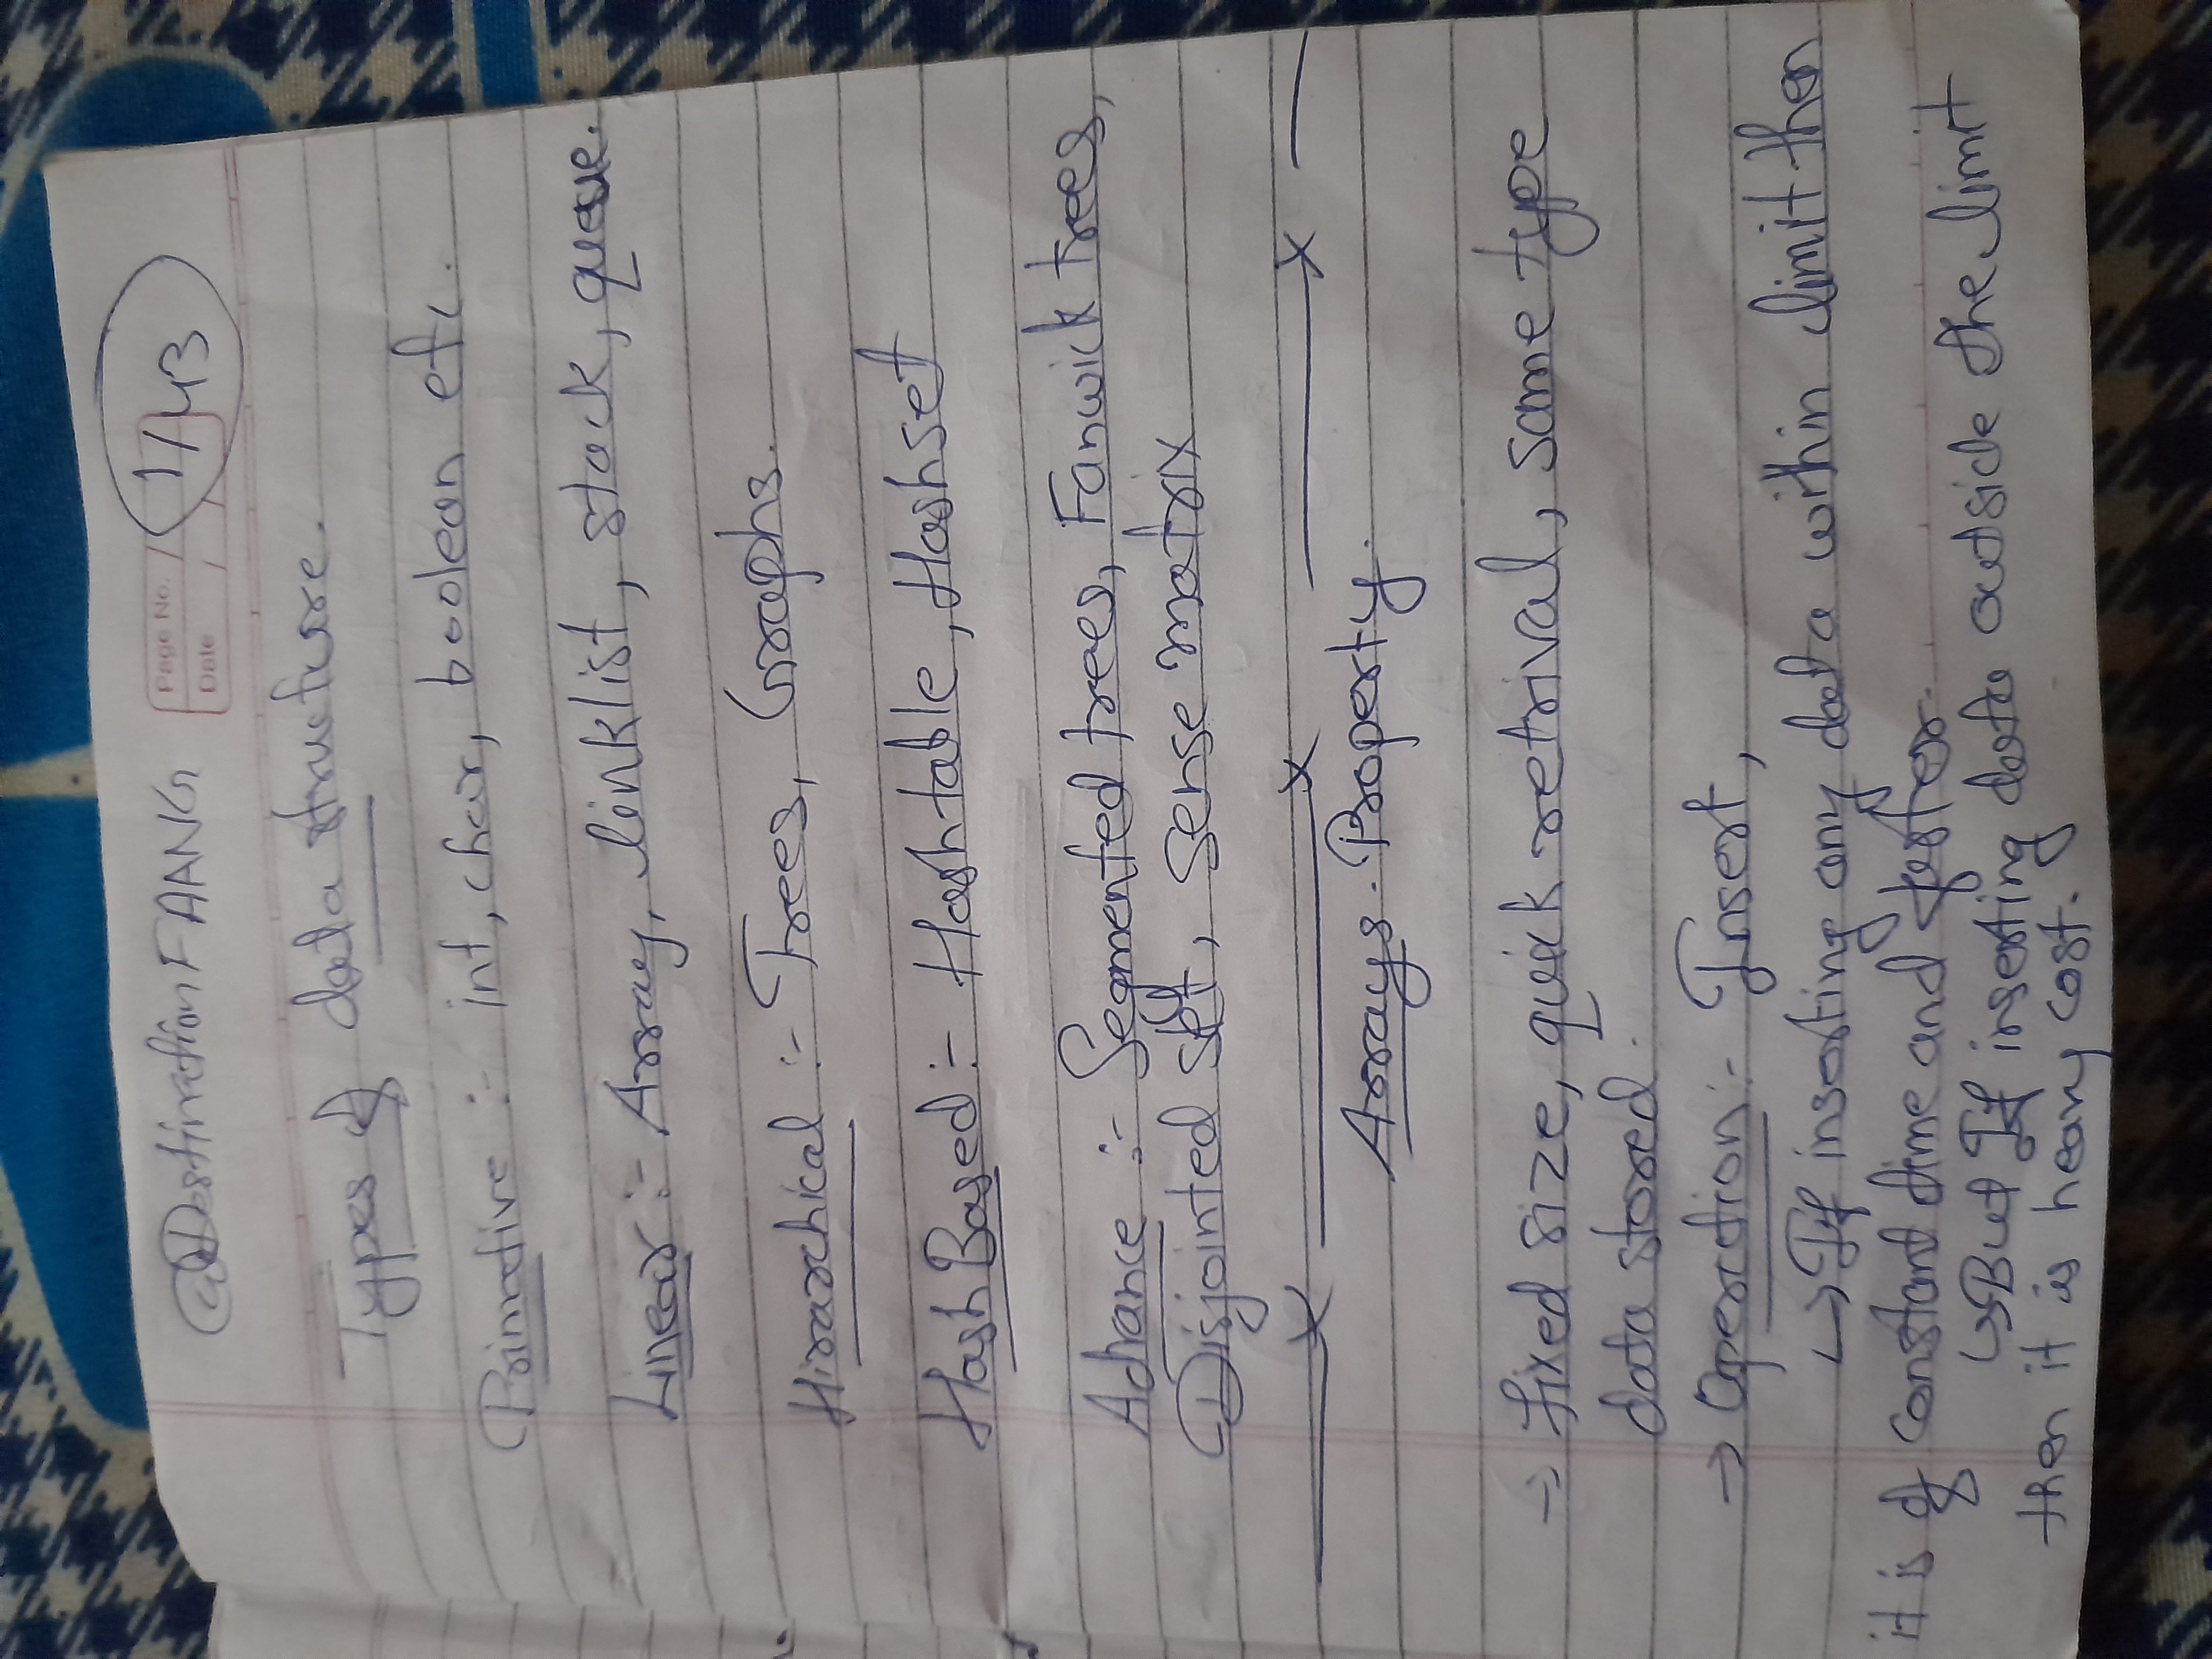 @DestinationFAANG
Page No. 1/43
Date / /
Types of data structure.
Primetive :- int, char, boolean etc.
Linear :- Array, linklist, stack, queue.
Hirarchical :- Trees, Graphs.
Hash Based :- Hashtable, Hashset
Advance :- Segmented trees, Fanwick trees,
Disjointed set, sense matrix
Arrays Property.
→ fixed size, quick retrival, same type
data stored.
→ Operation :- Insert,
↳ If inserting any data within limit then
it is of constant time and faster.
↳ But If inserting data outside the limit
then it is heavy cost.